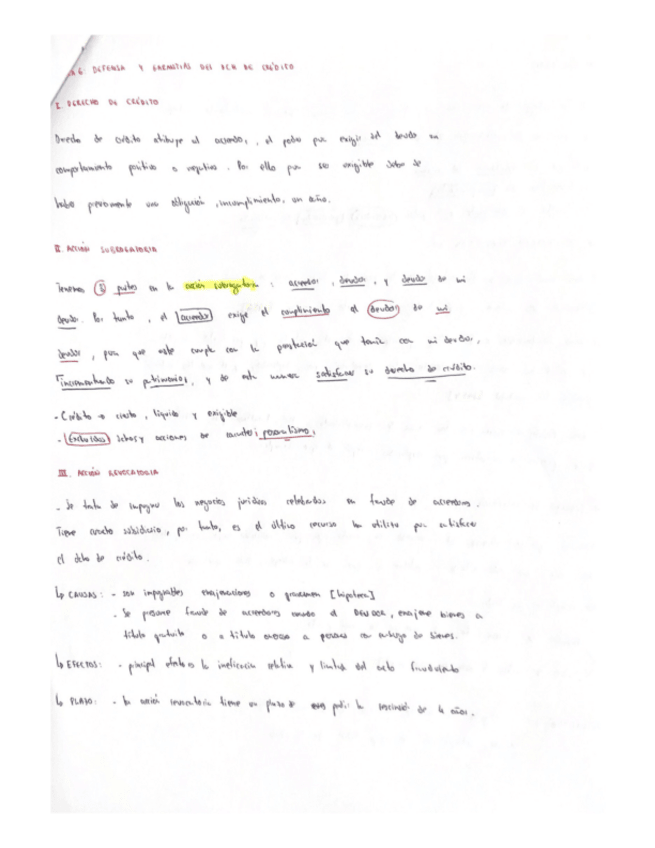 6: DEFENSA Y GARANTIAS DEL DCH DE CRÉDITO
I. DERECHO DE CRÉDITO
Derecho de crédito atribuye al acreedor, el poder para exigir del deudor un
comportamiento positivo o negativo. Por ello para ser exigible debe de
haber previamente una obligación, incumplimiento, un daño.
II. ACCIÓN SUBROGATORIA
Tenemos 3 partes en la acción subrogatoria: acreedor, deudor, y deudor de mi
deudor. Por tanto, el acreedor exige el cumplimiento al deudor de mi
deudor, para que este cumpla con la prestación que tenía con mi deudor,
incrementando su patrimonio, y de esta manera satisfacer su derecho de crédito.
- Crédito → cierto, líquido y exigible
- Excluidos dchos y acciones de carácter personalísimo.
III. ACCIÓN REVOCATORIA
- Se trata de impugnar los negocios jurídicos celebrados en fraude de acreedores.
Tiene carácter subsidiario, por tanto, es el último recurso a utilizar para satisfacer
el dcho de crédito.
↳ CAUSAS: - son impugnables enajenaciones o gravamen [hipoteca]
- Se presume fraude de acreedores cuando el DEUDOR, enajene bienes a
título gratuito o a título oneroso a personas con embargo de bienes.
↳ EFECTOS: - principal efecto es la ineficacia relativa y limitada del acto fraudulento
↳ PLAZO: - la acción revocatoria tiene un plazo de para pedir la rescisión de 4 años.